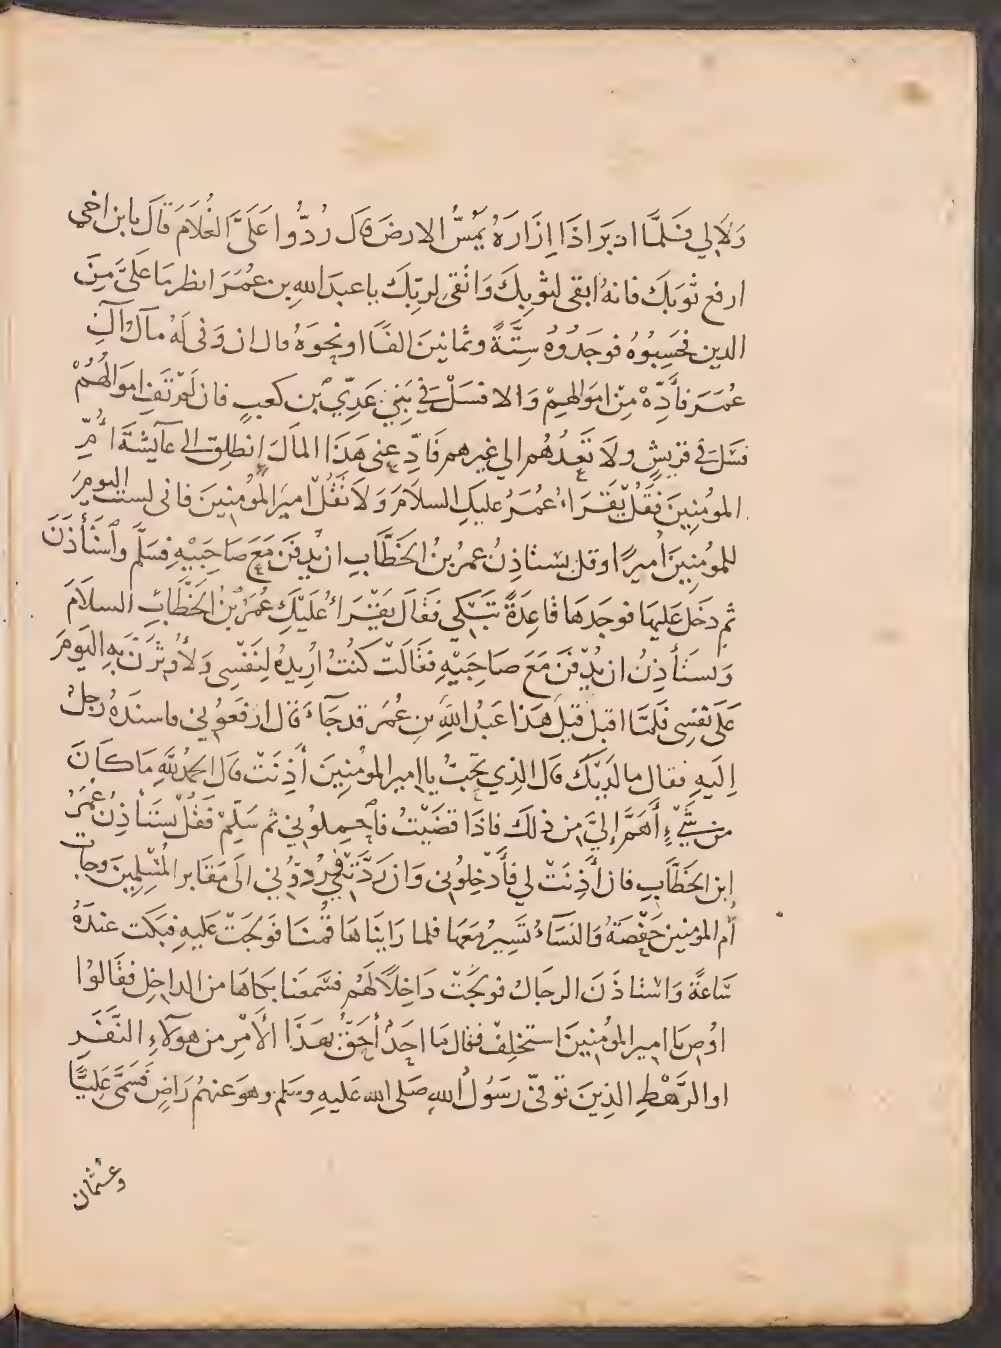 وَلَا لِي فَلَمَّا ادبَرَ اذَا اِزَارُهُ يَمَسُّ الارضَ قال رُدُّوا عَلَيَّ الغُلَامَ قَالَ يا بن اخي
ارفع ثوبَكَ فانهُ ابقى لثوبِكَ وَاتقى لربِّكَ يا عبدَ اللهِ بن عُمَرَ انظر مَا عَلَيَّ مِنَ
الدين فحَسِبُوُهُ فوجَدُوُهُ سِتَّةً وثمانينَ الفًا او نحوَهُ قال ان وَفى لَهُ مآلُ الِ
عُمَرَ فأدِّهْ مِنْ اموَالهِمْ وَالا فسَلْ فِي بَنِي عَدِيِّ بن كعبٍ فان لَمْ تَفِ اموَالُهُمْ
فسَل فِي قريشٍ ولَا تَعدُهُم الي غيرهم فَادِّ عنى هَذا المَالَ اِنطلِق الى عآيشَةَ اُمِّ
المؤمِنينَ فقُلْ يَقرَاءُ عُمَرُ عليكِ السلامَ وَلَا تَقُلْ اميرُ المُؤمِنينَ فانى لستُ اليومَ
للمؤمِنينَ اميرًا وقل يستاذِنُ عمرُ بنُ الخَطَّابِ ان يُدفنَ مَعَ صَاحِبَيْهِ فسَلَّم وَاستَأذَنَ
ثم دَخل عَليهَا فوجَدهَا قاعِدَةً تَبْكي فقَال يَقْرَاءُ عَلَيْكِ عُمَرُ بْنُ الخَطَّابِ السلَامَ
وَيسَتأذِنُ ان يُدْفَنَ مَعَ صَاحِبَيْهِ فقَالَتْ كُنتُ اُرِيدُهُ لِنَفْسِى وَلَأوثِرَنَّ بهِ اليَومَ
عَلَى نفسِى فلَمَّا اقبل قِيلَ هَذا عَبدُ اللهِ بن عُمَر قد جَآءَ قال ارفَعُوُنِي فاسندَهُ رَجلٌ
اِليَهِ فقال ما لَدَيْكَ قالَ الذِي تحِبُّ يا امير المؤمِنينَ أَذِنَتْ قال الحمدُ للَّهِ مَا كَانَ
من شَيْءٍ أَهَمَّ اِليَّ من ذلكَ فاذَا قضَيْتُ فاحمِلوُنِي ثم سَلِّمْ فَقُلْ يستأذِنُ عُمَرُ
ابن الخَطَّابِ فان أَذِنَتْ لي فأَدْخِلُوُنِي وَان رَدَّتْنِي رُدُّوُنِي الَى مَقَابر المُسْلِمِينَ وجات
أم المومنين حَفْصَةُ وَالنسَآءُ تَسِيرُ مَعَهَا فلما رَايَنَاهَا قُمْنَا فوَلجَتْ عَليهِ فبَكَت عندَهُ
سَاعَةً وَاسْتاذَنَ الرجال فولَجَتْ دَاخِلًا لَهُم فسَمعنَا بكاهَا من الداخِل فقَالوُا
اوُصِ يَا امير المؤمِنينَ استَخلِفْ فقال مَا احَدٌ أحَقُّ بهَذَا الأَمْرِ من هوَلآءِ النَّفَرِ
او الرَّهْطِ الذِينَ تُوُفِيَّ رسَوُلُ اللهِ صَلى الله عَليهِ وسَلم وهوَ عنهُم رَاضٍ فَسَمَّى عَلِيًّا
وعُثمان